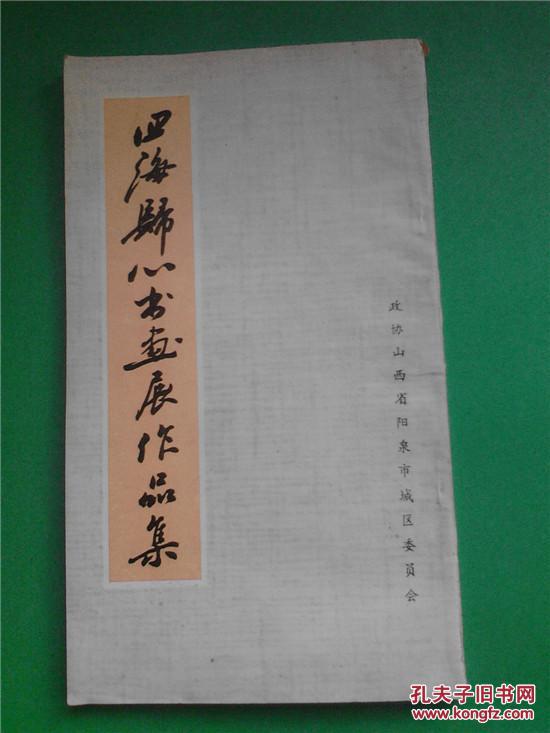 四海歸心书画展作品集
政协山西省阳泉市城区委员会
孔夫子旧书网
www.kongfz.com